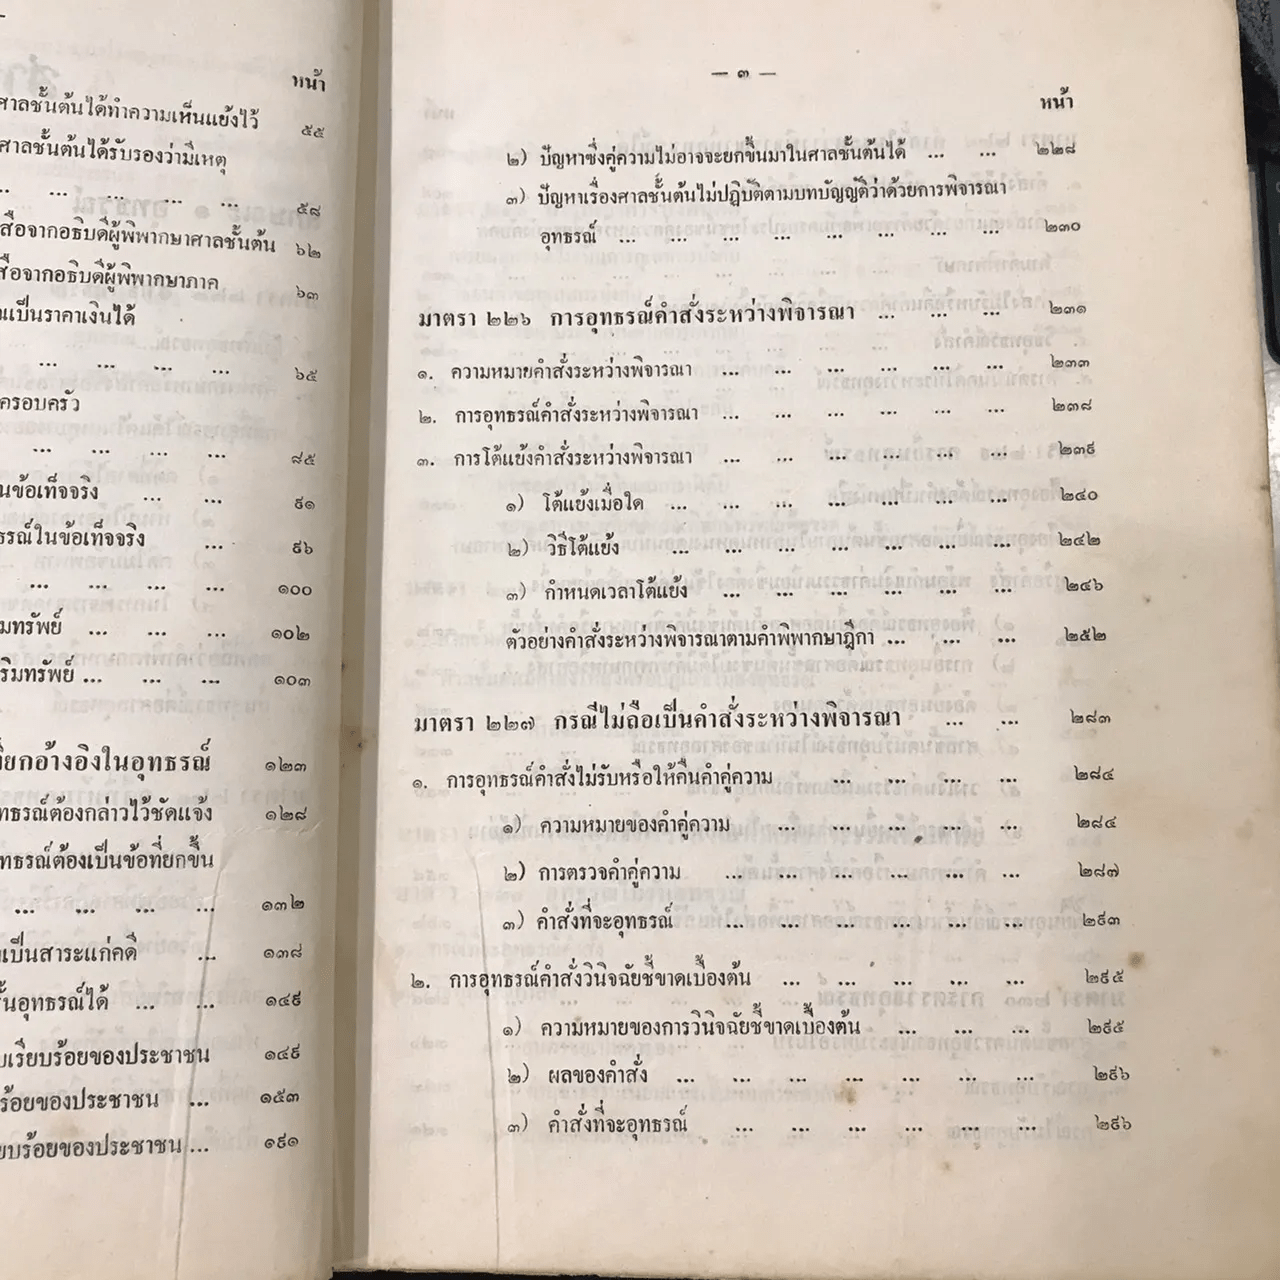 หน้า
ศาลชั้นต้นได้ทำความเห็นแย้งไว้ ๕๕
ศาลชั้นต้นได้รับรองว่ามีเหตุ
... ... ... ... ... ๕๘
สือจากอธิบดีผู้พิพากษาศาลชั้นต้น ๖๒
สือจากอธิบดีผู้พิพากษาภาค ๖๓
ณเป็นราคาเงินได้
... ... ... ... ๖๕
ครอบครัว
... ... ... ... ๘๕
นข้อเท็จจริง ... ... ๙๑
ธรณ์ในข้อเท็จจริง ... ๙๖
... ... ... ... ๑๐๐
มทรัพย์ ... ... ... ๑๐๒
ริมทรัพย์ ... ... ... ๑๐๓
ยกอ้างอิงในอุทธรณ์ ๑๒๓
ทธรณ์ต้องกล่าวไว้ชัดแจ้ง ๑๒๘
ทธรณ์ต้องเป็นข้อที่ยกขึ้น
... ... ... ... ๑๓๒
เป็นสาระแก่คดี ... ๑๓๘
ั้นอุทธรณ์ได้ ... ... ๑๔๙
บเรียบร้อยของประชาชน ๑๔๙
ร้อยของประชาชน ... ๑๕๓
ยบร้อยของประชาชน ... ๑๙๑
— ๓ —
หน้า
๒) ปัญหาซึ่งคู่ความไม่อาจจะยกขึ้นมาในศาลชั้นต้นได้ ... ... ๒๒๘
๓) ปัญหาเรื่องศาลชั้นต้นไม่ปฏิบัติตามบทบัญญัติว่าด้วยการพิจารณา
อุทธรณ์ ... ... ... ... ... ... ... ... ๒๓๐
มาตรา ๒๒๖ การอุทธรณ์คำสั่งระหว่างพิจารณา ... ... ... ๒๓๑
๑. ความหมายคำสั่งระหว่างพิจารณา ... ... ... ... ... ... ๒๓๓
๒. การอุทธรณ์คำสั่งระหว่างพิจารณา ... ... ... ... ... ... ๒๓๘
๓. การโต้แย้งคำสั่งระหว่างพิจารณา ... ... ... ... ... ... ๒๓๙
๑) โต้แย้งเมื่อใด ... ... ... ... ... ... ... ๒๔๐
๒) วิธีโต้แย้ง ... ... ... ... ... ... ... ๒๔๒
๓) กำหนดเวลาโต้แย้ง ... ... ... ... ... ... ๒๔๖
ตัวอย่างคำสั่งระหว่างพิจารณาตามคำพิพากษาฎีกา ... ... ... ๒๕๒
มาตรา ๒๒๗ กรณีไม่ถือเป็นคำสั่งระหว่างพิจารณา ... ... ๒๘๓
๑. การอุทธรณ์คำสั่งไม่รับหรือให้คืนคำคู่ความ ... ... ... ... ๒๘๔
๑) ความหมายของคำคู่ความ ... ... ... ... ... ๒๘๔
๒) การตรวจคำคู่ความ ... ... ... ... ... ... ๒๘๗
๓) คำสั่งที่จะอุทธรณ์ ... ... ... ... ... ... ๒๙๓
๒. การอุทธรณ์คำสั่งวินิจฉัยชี้ขาดเบื้องต้น ... ... ... ... ... ๒๙๕
๑) ความหมายของการวินิจฉัยชี้ขาดเบื้องต้น ... ... ... ๒๙๕
๒) ผลของคำสั่ง ... ... ... ... ... ... ... ๒๙๖
๓) คำสั่งที่จะอุทธรณ์ ... ... ... ... ... ... ๒๙๖